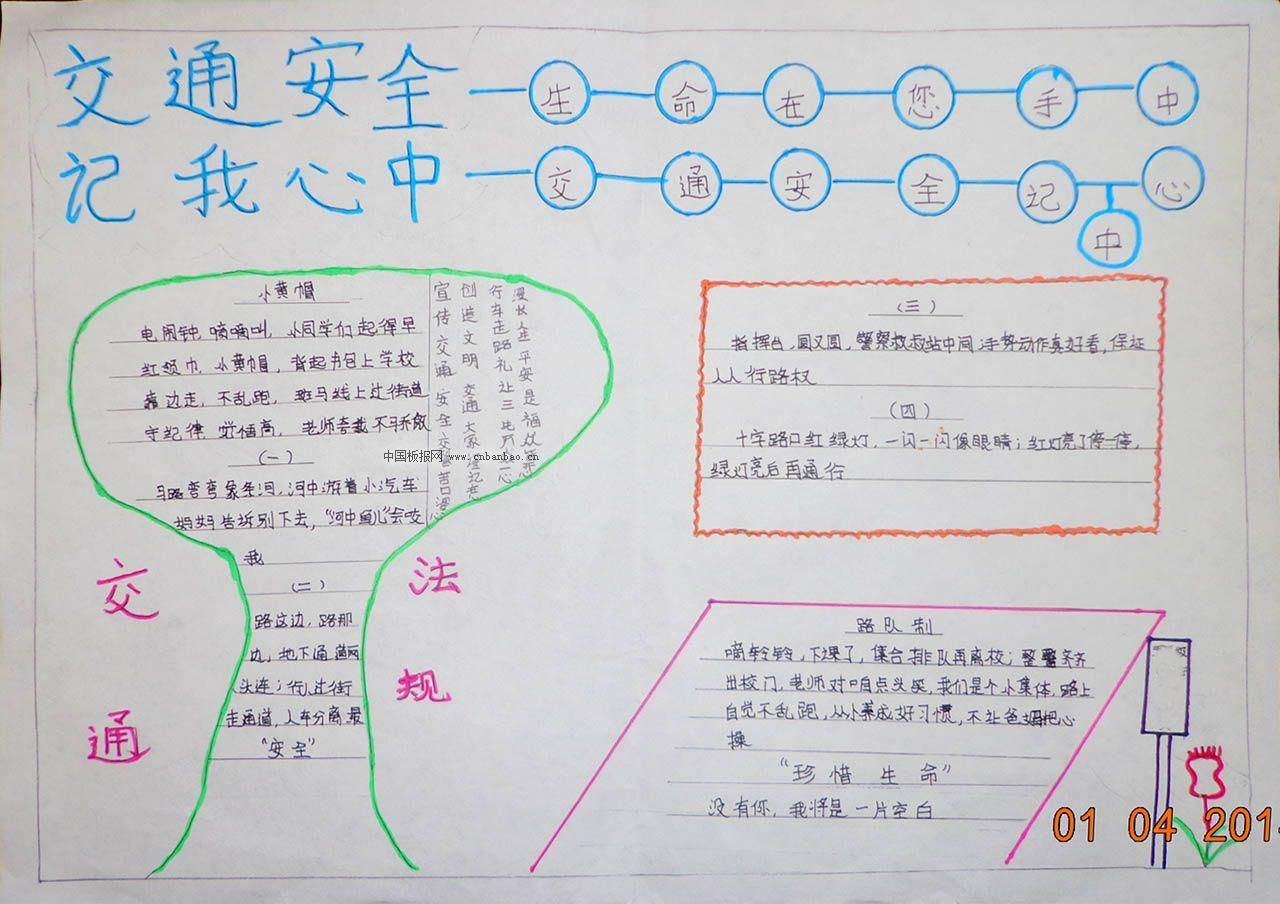 交通安全
记我心中
生命在您手中
交通安全记心中
小黄帽
电闹钟,嘀嘀叫,小同学们起得早
红领巾,小黄帽,背起书包上学校
靠边走,不乱跑,斑马线上过街道
守纪律,觉悟高,老师夸我不骄傲
(一)
马路弯弯象条河,河中游着小汽车
妈妈告诉别下去,“河中鱼儿”会咬
我
(二)
路这边,路那
边,地下通道两
头连;行人过街
走通道,人车分离最
“安全”
宣传交通安全交警苦口婆心
创造文明交通大家谨记
行车走路礼让三
漫长人生平安是福
交通
法规
(三)
指挥台,圆又圆,警察叔叔站中间;手势动作真好看,保证
人人行路权
(四)
十字路口红绿灯,一闪一闪像眼睛;红灯亮了停一停,
绿灯亮后再通行
路队制
嘀铃铃,下课了,集合排队再离校;整整齐齐
出校门,老师对咱点头笑,我们是个小集体,路上
自觉不乱跑,从小养成好习惯,不让爸妈把心
操
“珍惜生命”
没有你,我将是一片空白
中国板报网 www.cnbanbao.cn
01 04 201